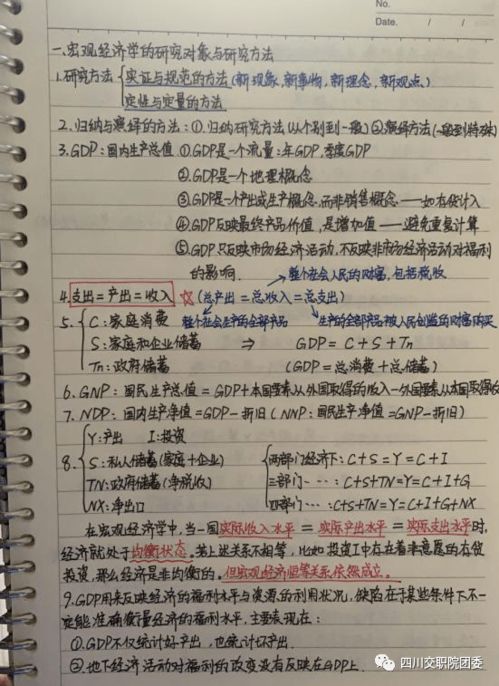 No.
Date. / /
一.宏观经济学的研究对象与研究方法
1.研究方法 { 实证与规范的方法 (新现象,新事物,新理念,新观点)
定性与定量的方法
2.归纳与演绎的方法:①.归纳研究方法(从个别到一般) ②.演绎方法(一般到特殊)
3.GDP:国内生产总值 ①.GDP是一个流量:年GDP,季度GDP
②.GDP是一个地理概念
③.GDP是一个产出或生产概念,而非销售概念——如存货计入
④.GDP反映最终产品价值,是增加值——避免重复计算
⑤.GDP只反映市场经济活动,不反映非市场经济活动对福利
的影响.
整个社会人民的财富,包括税收
4.支出=产出=收入 ☆(总产出=总收入=总支出)
整个社会生产的全部产品 生产的全部产品被人民创造的财富购买
5. { C:家庭消费
S:家庭和企业储蓄 ⇒ GDP = C + S + Tn
Tn:政府储蓄 (GDP=总消费+总储蓄)
6.GNP:国民生产总值=GDP+本国要素从外国取得的收入-外国要素从本国取得收
7.NDP:国内生产净值=GDP-折旧(NNP:国民生产净值=GNP-折旧)
8. { Y:产出 I:投资
S:私人储蓄(家庭+企业) { 两部门经济下:C+S=Y=C+I
TN:政府储蓄(净税收) 三部门···:C+S+TN=Y=C+I+G
NX:净出口 四部门···:C+S+TN=Y=C+I+G+NX
在宏观经济学中,当一国实际收入水平=实际产出水平=实际支出水平时,
经济就处于均衡状态。若上述关系不相等,比如投资I中存在着非意愿的存货
投资,那么经济是非均衡的。但宏观经济恒等关系依然成立。
9.GDP用来反映经济的福利水平与资源的利用状况,缺陷在于某些条件下不一
定能准确衡量经济的福利水平,主要表现在:
①.GDP不仅统计好产出,也统计坏产出.
②.地下经济活动对福利的改变没有反映在GDP上.
四川交职院团委